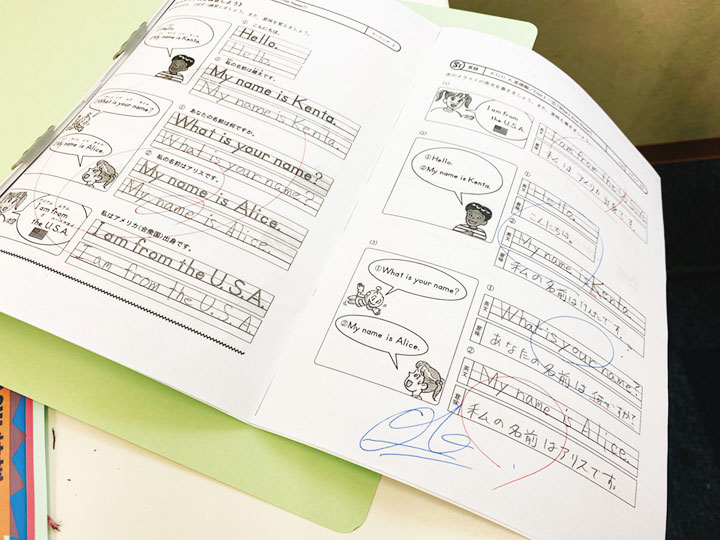 Hello.
My name is Kenta.
① こんにちは。
Hello.
Hello.
② 私の名前は健太です。
My name is Kenta.
My name is Kenta.
What is your name?
My name is Alice.
① あなたの名前は何ですか。
What is your name?
What is your name?
② 私の名前はアリスです。
My name is Alice.
My name is Alice.
I am from
the U.S.A.
私はアメリカ(合衆国)出身です。
I am from the U.S.A.
I am from the U.S.A.
S1 英語
(1)
I am from
the U.S.A.
英文
I am from the U.S.A.
意味
私は アメリカ
(2)
①Hello.
②My name is Kenta.
①
英文
Hello.
意味
こんにちは。
②
英文
My name is Kenta.
意味
私の名前はけんたです。
(3)
①What is your name?
②My name is Alice.
①
英文
What is your name?
意味
あなたの名前は何ですか?
②
英文
My name is Alice.
意味
私の名前はアリスです。